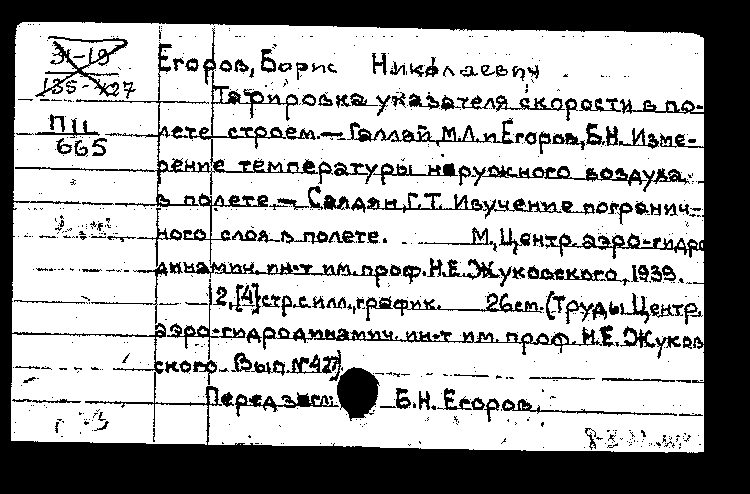 31-19
135-427
П11
665
Егоров, Борис Николаевич
Тарировка указателя скорости в по-
лете строем. — Галлай, М.Л. и Егоров, Б.Н. Изме-
рение температуры наружного воздуха
в полете. — Саядян, Г.Т. Изучение погранич-
ного слоя в полете. М, Центр. аэро-гидро
динамич. ин-т им. проф. Н.Е. Жуковского, 1939.
12, [4] стр. с илл., график. 26 см. (Труды Центр.
аэро-гидродинамич. ин-т им. проф. Н.Е. Жуков
ского. Вып. № 427)
Перед загл: Б.Н. Егоров,